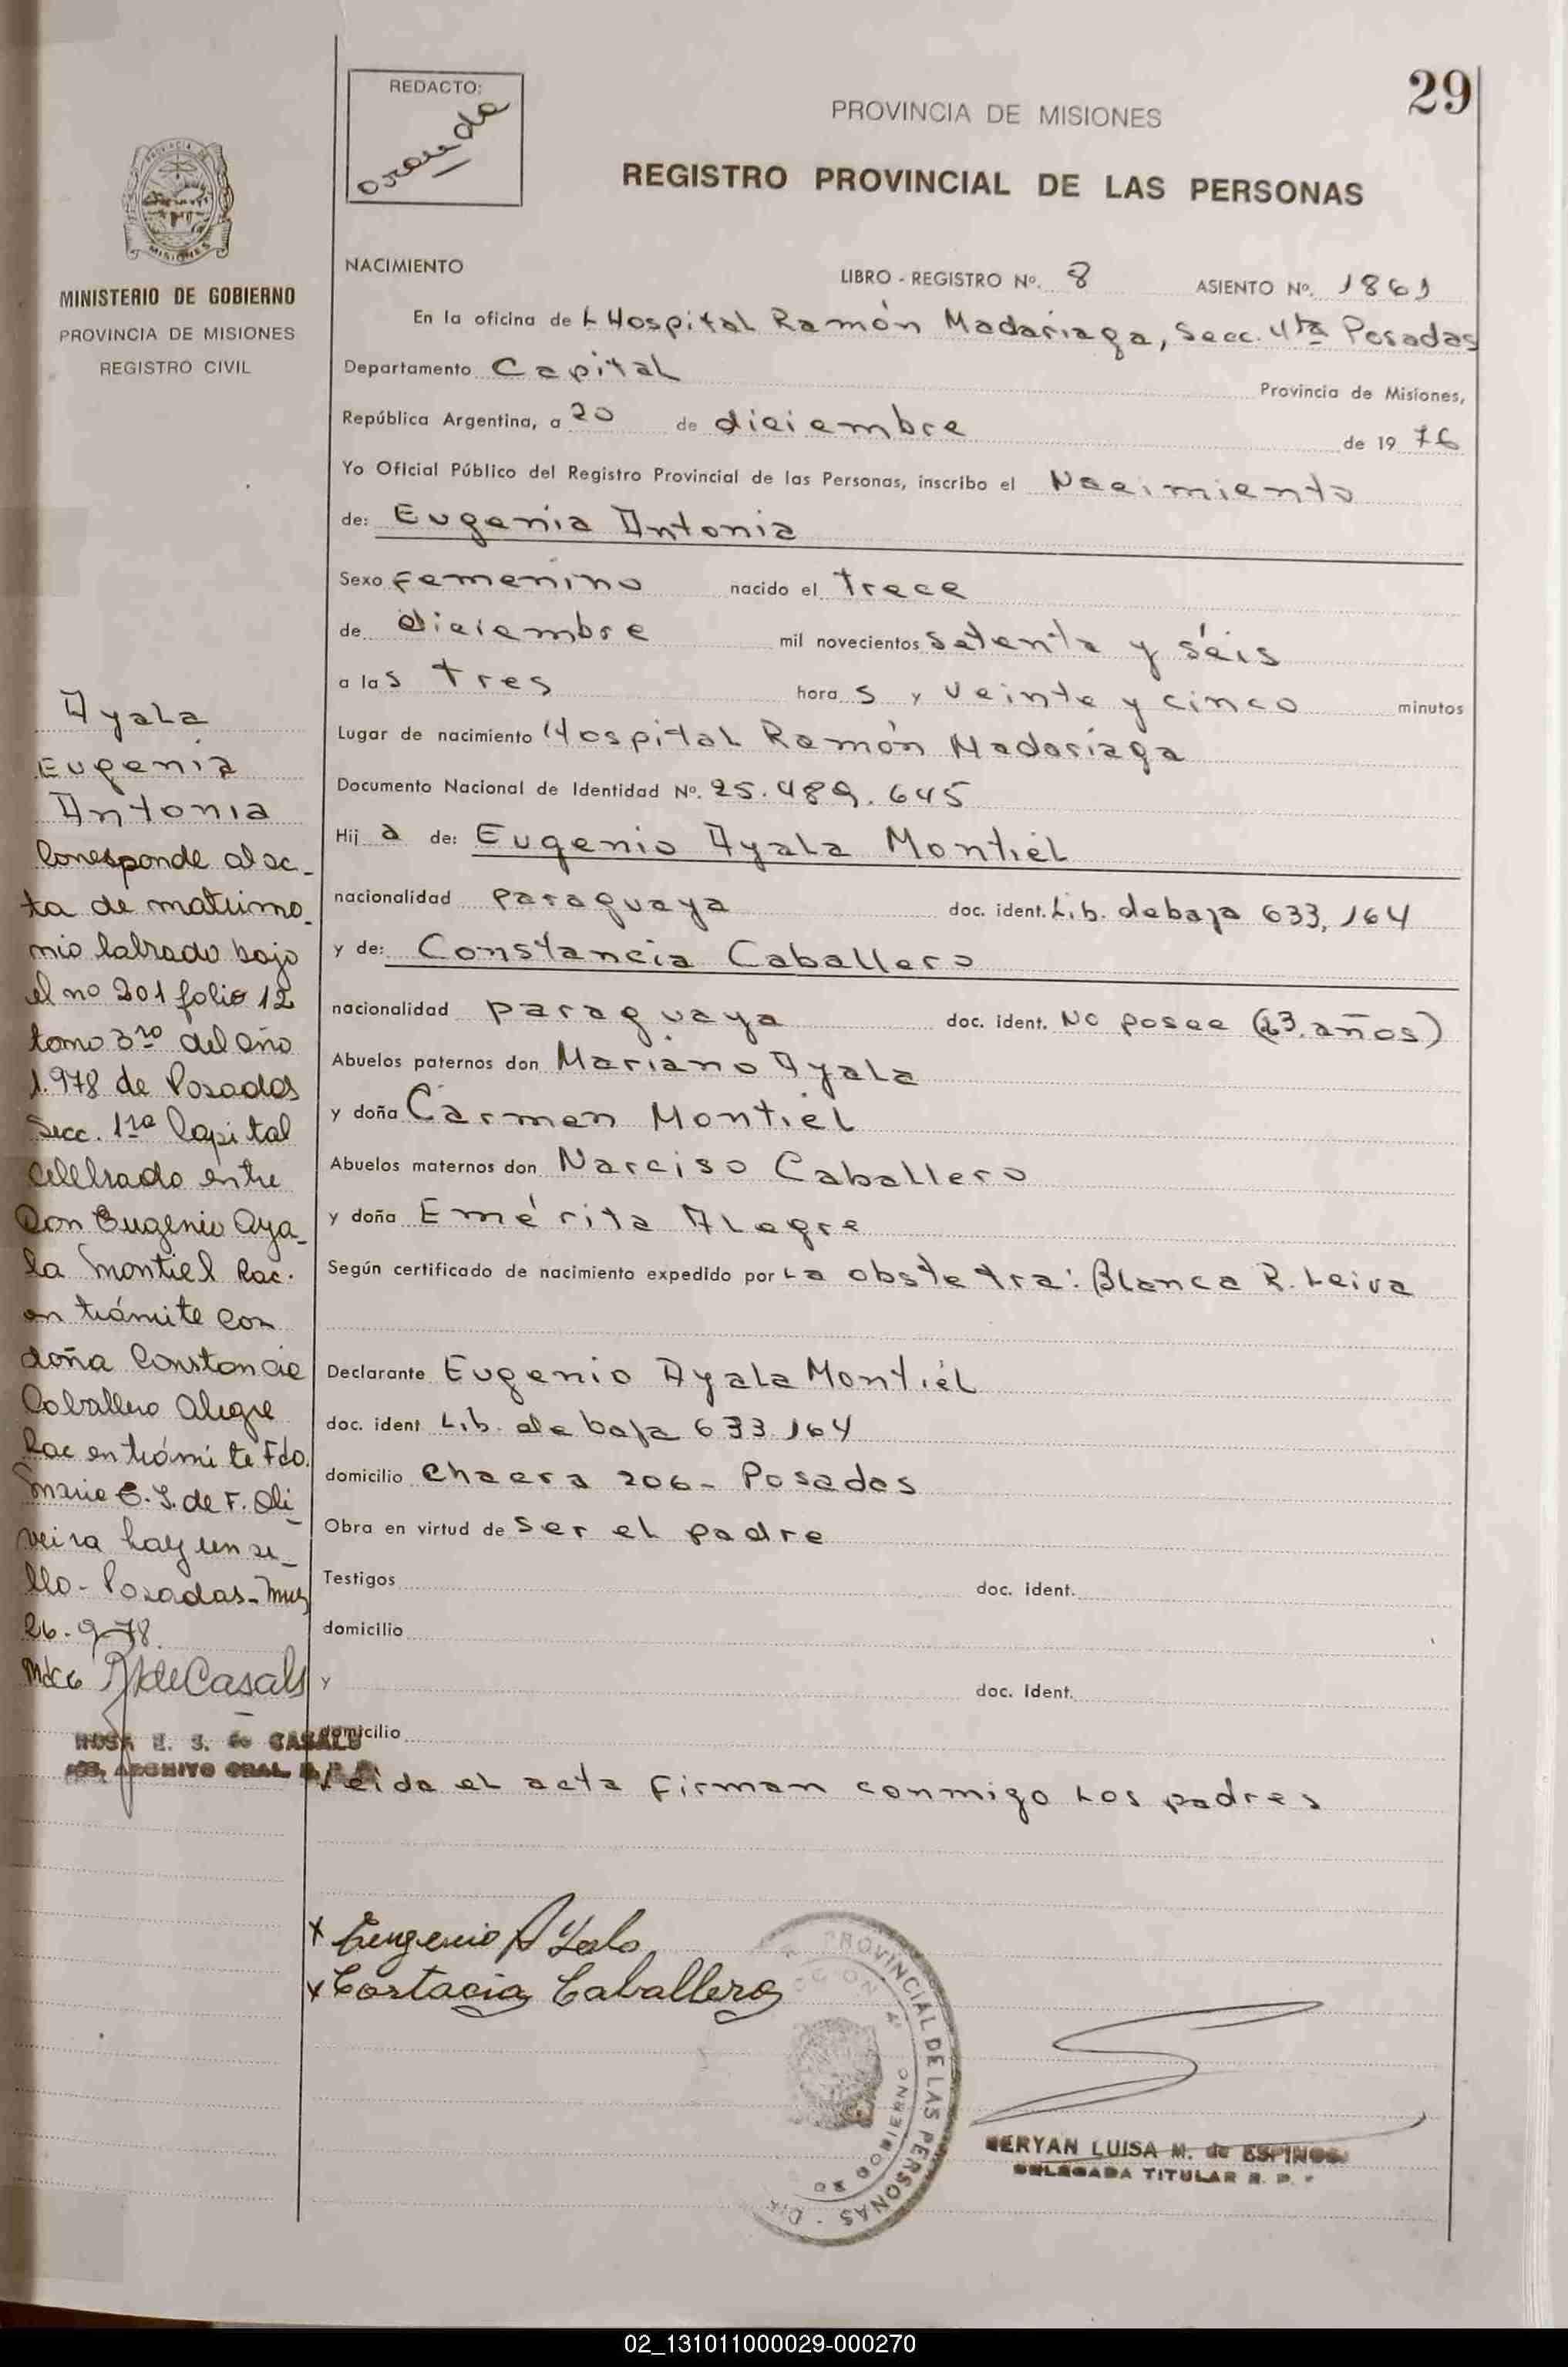 29
REDACTO:
PROVINCIA DE MISIONES
REGISTRO PROVINCIAL DE LAS PERSONAS
PROVINCIA DE
MISIONES
MINISTERIO DE GOBIERNO
PROVINCIA DE MISIONES
REGISTRO CIVIL
NACIMIENTO LIBRO - REGISTRO Nº. 8 ASIENTO Nº. 1861
En la oficina de L Hospital Ramón Madariaga, Secc. 4ta Posadas
Departamento Capital Provincia de Misiones,
República Argentina, a 20 de diciembre de 19 76
Yo Oficial Público del Registro Provincial de las Personas, inscribo el Nacimiento
de: Eugenia Antonia
Sexo Femenino nacido el trece
de diciembre mil novecientos setenta y séis
a las tres horas y veinte y cinco minutos
Lugar de nacimiento Hospital Ramón Madariaga
Documento Nacional de Identidad Nº. 25.489.645
Hij a de: Eugenio Ayala Montiel
nacionalidad paraguaya doc. ident. Lib. de baja 633,164
y de: Constancia Caballero
nacionalidad paraguaya doc. ident. No posee (23 años)
Abuelos paternos don Mariano Ayala
y doña Carmen Montiel
Abuelos maternos don Narciso Caballero
y doña Emérita Alegre
Según certificado de nacimiento expedido por La obstetra: Blanca R. Leiva
Declarante Eugenio Ayala Montiel
doc. ident Lib. de baja 633.164
domicilio chacra 206- Posadas
Obra en virtud de ser el padre
Testigos doc. ident.
domicilio
y doc. ident.
domicilio
Leida el acta firman conmigo los padres
Eugenio Ayala
Costacia Caballero
Ayala
Eugenia
Antonia
Corresponde al ac-
ta de matrimo-
nio labrado bajo
el no 201 folio 12
tomo 3ro del año
1.978 de Posadas
Secc. 1ra Capital
celebrado entre
Don Eugenio Aya-
la Montiel Rac.
en trámite con
doña Constancia
Caballero Alegre
Rac en trámite Fdo.
Maria E. S. de F. Oli-
veira hay un se-
llo - Posadas - Mnes
26-9-78
R de Casals
ROSA E. S. de CASALS
ARCHIVO GRAL.
PROVINCIAL DE LAS PERSONAS - DIR
GOBIERNO
MERYAN LUISA M. de ESPINOSA
DELEGADA TITULAR R. P.
02_131011000029-000270